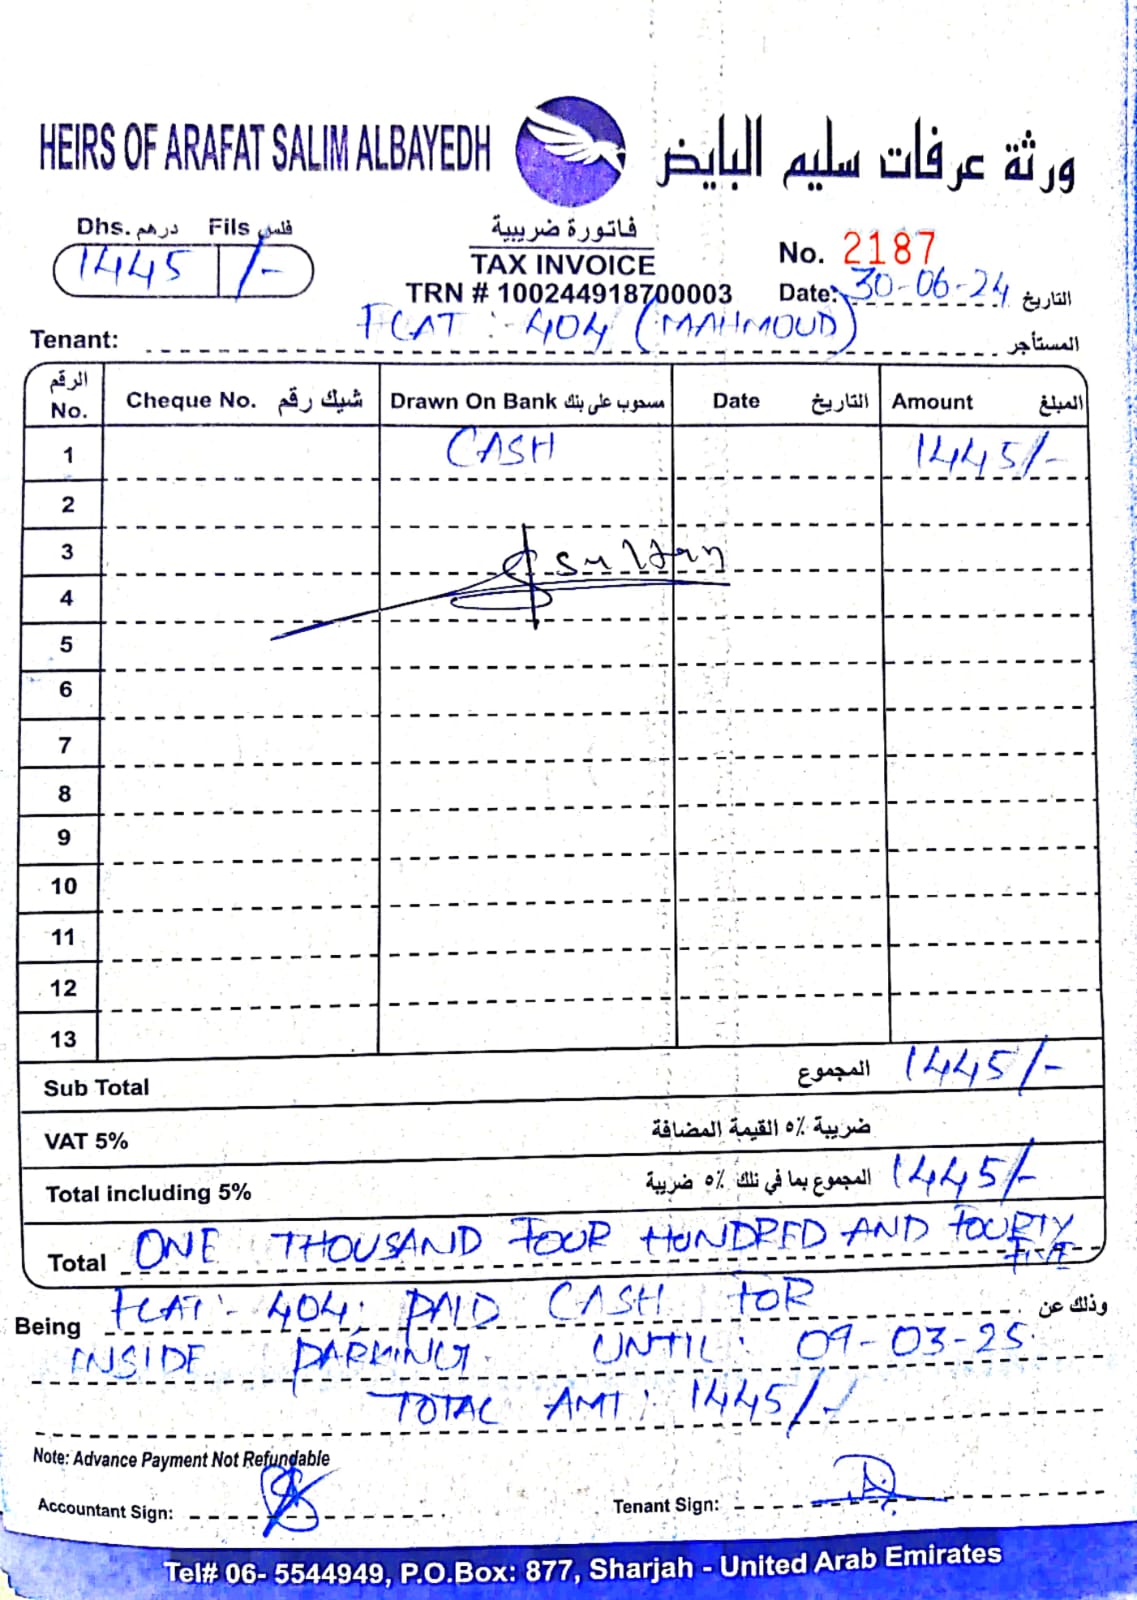 HEIRS OF ARAFAT SALIM ALBAYEDH ورثة عرفات سليم البايض
Dhs. درهم Fils فلس
1445 /-
فاتورة ضريبية
TAX INVOICE
TRN # 100244918700003
No. 2187
Date: 30-06-24 التاريخ
Tenant: FLAT :- 404 (MAHMOUD) المستأجر
الرقم No. Cheque No. شيك رقم Drawn On Bank مسحوب على بنك Date التاريخ Amount المبلغ
1 CASH 1445/-
2
3 Sultan
4
5
6
7
8
9
10
11
12
13
Sub Total المجموع 1445/-
VAT 5% ضريبة ٥٪ القيمة المضافة
Total including 5% المجموع بما في ذلك ٥٪ ضريبة 1445/-
Total ONE THOUSAND FOUR HUNDRED AND FOURTY FIVE
Being FLAT:- 404, PAID CASH FOR وذلك عن
INSIDE PARKING. UNTIL: 09-03-25.
TOTAL AMT: 1445/-
Note: Advance Payment Not Refundable
Accountant Sign: Tenant Sign:
Tel# 06- 5544949, P.O.Box: 877, Sharjah - United Arab Emirates